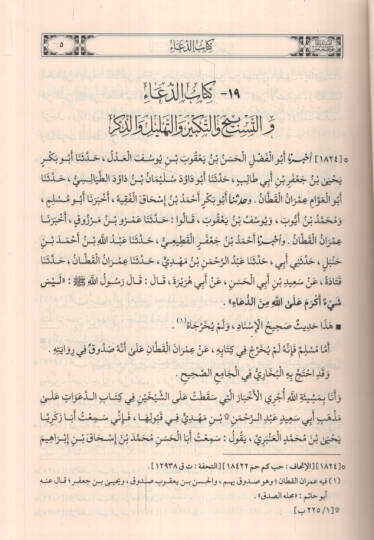 كتاب الدعاء
٥
١٩- كتاب الدعاء
والتسبيح والتكبير والتهليل والذكر
٥ [١٨٢٤] أخبرنا أبو الفضل الحسن بن يعقوب بن يوسف العدل، حدثنا أبو بكر
يحيى بن جعفر بن أبي طالب، حدثنا أبو داود سليمان بن داود الطيالسي، حدثنا
أبو العوام عمران القطان. وحدثنا أبو بكر أحمد بن إسحاق الفقيه، أخبرنا أبو مسلم،
ومحمد بن أيوب، ويوسف بن يعقوب، قالوا: حدثنا عمرو بن مرزوق، أخبرنا
عمران القطان. وأخبرنا أحمد بن جعفر القطيعي، حدثنا عبد الله بن أحمد بن
حنبل، حدثني أبي، حدثنا عبد الرحمن بن مهدي، حدثنا عمران القطان، حدثنا
قتادة، عن سعيد بن أبي الحسن، عن أبي هريرة، قال: قال رسول الله ﷺ: «ليس
شيء أكرم على الله من الدعاء».
■ هذا حديث صحيح الإسناد، ولم يخرجاه(١).
أما مسلم فإنه لم يخرج في كتابه، عن عمران القطان على أنه صدوق في روايته.
وقد احتج به البخاري في الجامع الصحيح.
وأنا بمشيئة الله أجري الأخبار التي سقطت على الشيخين في كتاب الدعوات على
مذهب أبي سعيد عبد الرحمن بن مهدي في قبولها، فإني سمعت أبا زكريا
يحيى بن محمد العنبري، يقول: سمعت أبا الحسن محمد بن إسحاق بن إبراهيم
٥ [١٨٢٤] [الإتحاف: حب كم حم ١٨٤٢٢] [التحفة: ت ق ١٢٩٣٨]
(١) فيه عمران القطان؛ وهو صدوق يهم، والحسن بن يعقوب صدوق، ويحيى بن جعفر؛ قال عنه
أبو حاتم: «محله الصدق».
[١/ ٢٢٥ ب]